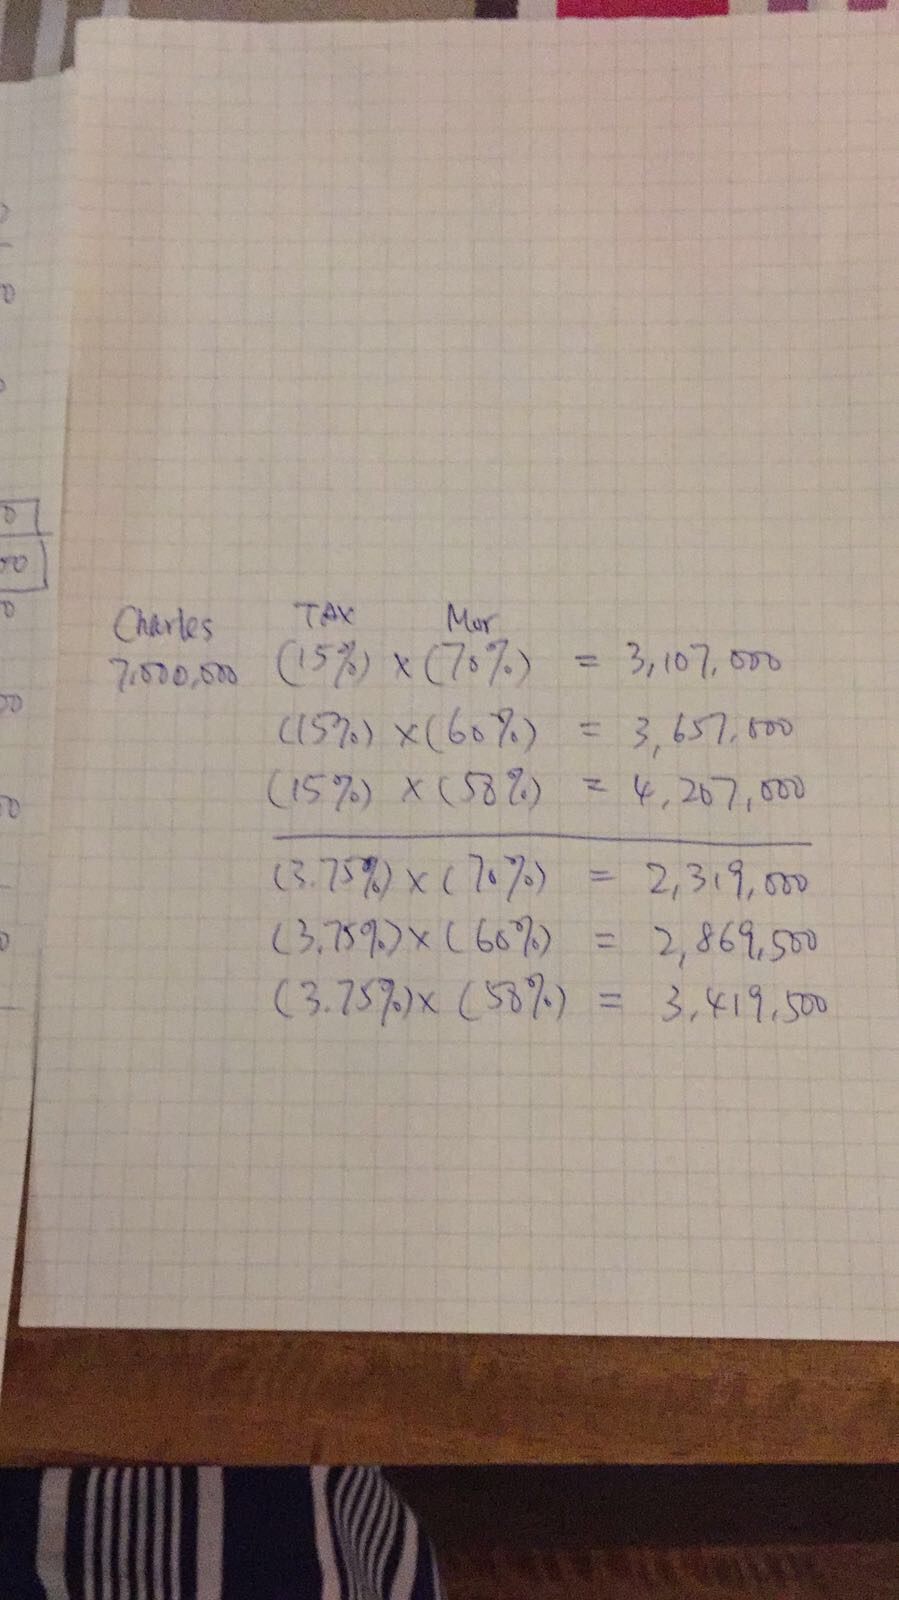 Charles TAX Mor
7,000,000 (15%) x (70%) = 3,107,000
(15%) x (60%) = 3,657,000
(15%) x (50%) = 4,207,000
(3.75%) x (70%) = 2,319,000
(3.75%) x (60%) = 2,869,500
(3.75%) x (50%) = 3,419,500